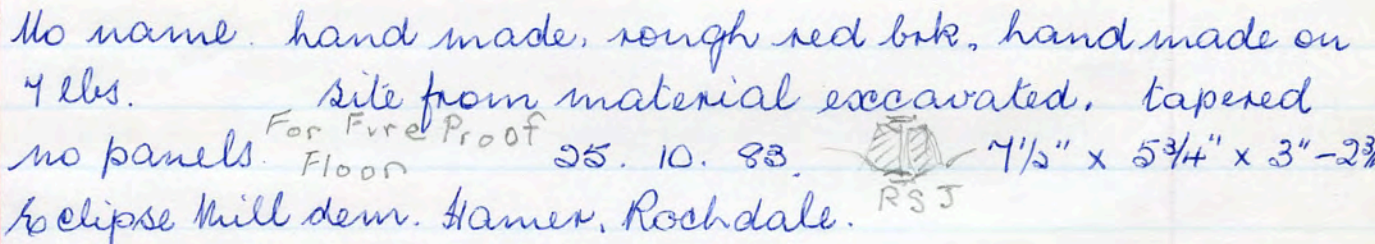 No name. hand made, rough red brk. handmade on
7 lbs. site from material excavated. tapered
no panels. For Fire Proof Floor 25. 10. 83. RSJ 7 1/2" x 5 3/4" x 3" - 2 3/
Eclipse Mill dem. Hamer, Rochdale.